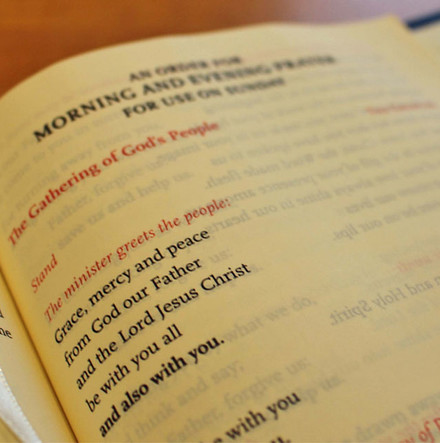 AN ORDER FOR
MORNING AND EVENING PRAYER
FOR USE ON SUNDAY
The Gathering of God's People
Stand
The minister greets the people:
Grace, mercy and peace
from God our Father
and the Lord Jesus Christ
be with you all
and also with you.
with you